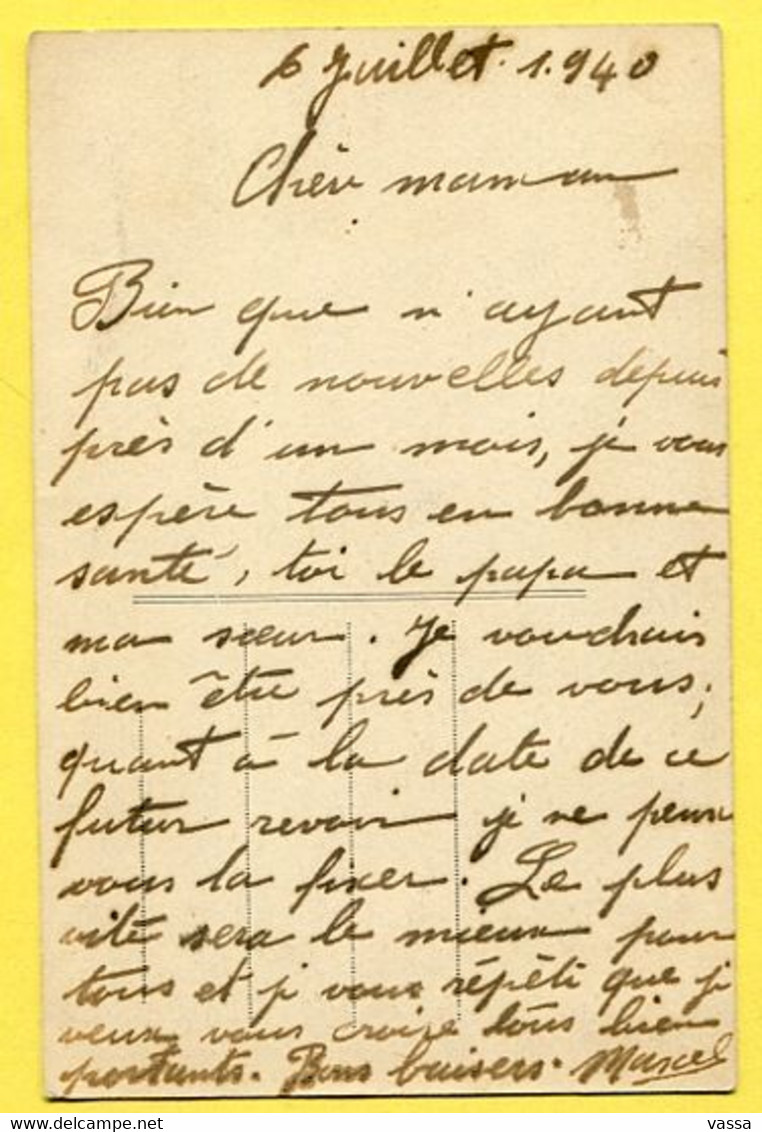 6 Juillet. 1.940
Chère maman
Bien que n'ayant
pas de nouvelles depuis
près d'un mois, je vous
espère tous en bonne
santé, toi le papa et
ma sœur. Je voudrais
bien être près de vous;
quant à la date de ce
futur revoir je ne peux
vous la fixer. Le plus
vite sera le mieux pour
tous et je vous répète que je
veux vous croire tous bien
portants. Bons baisers. Marcel
vassa